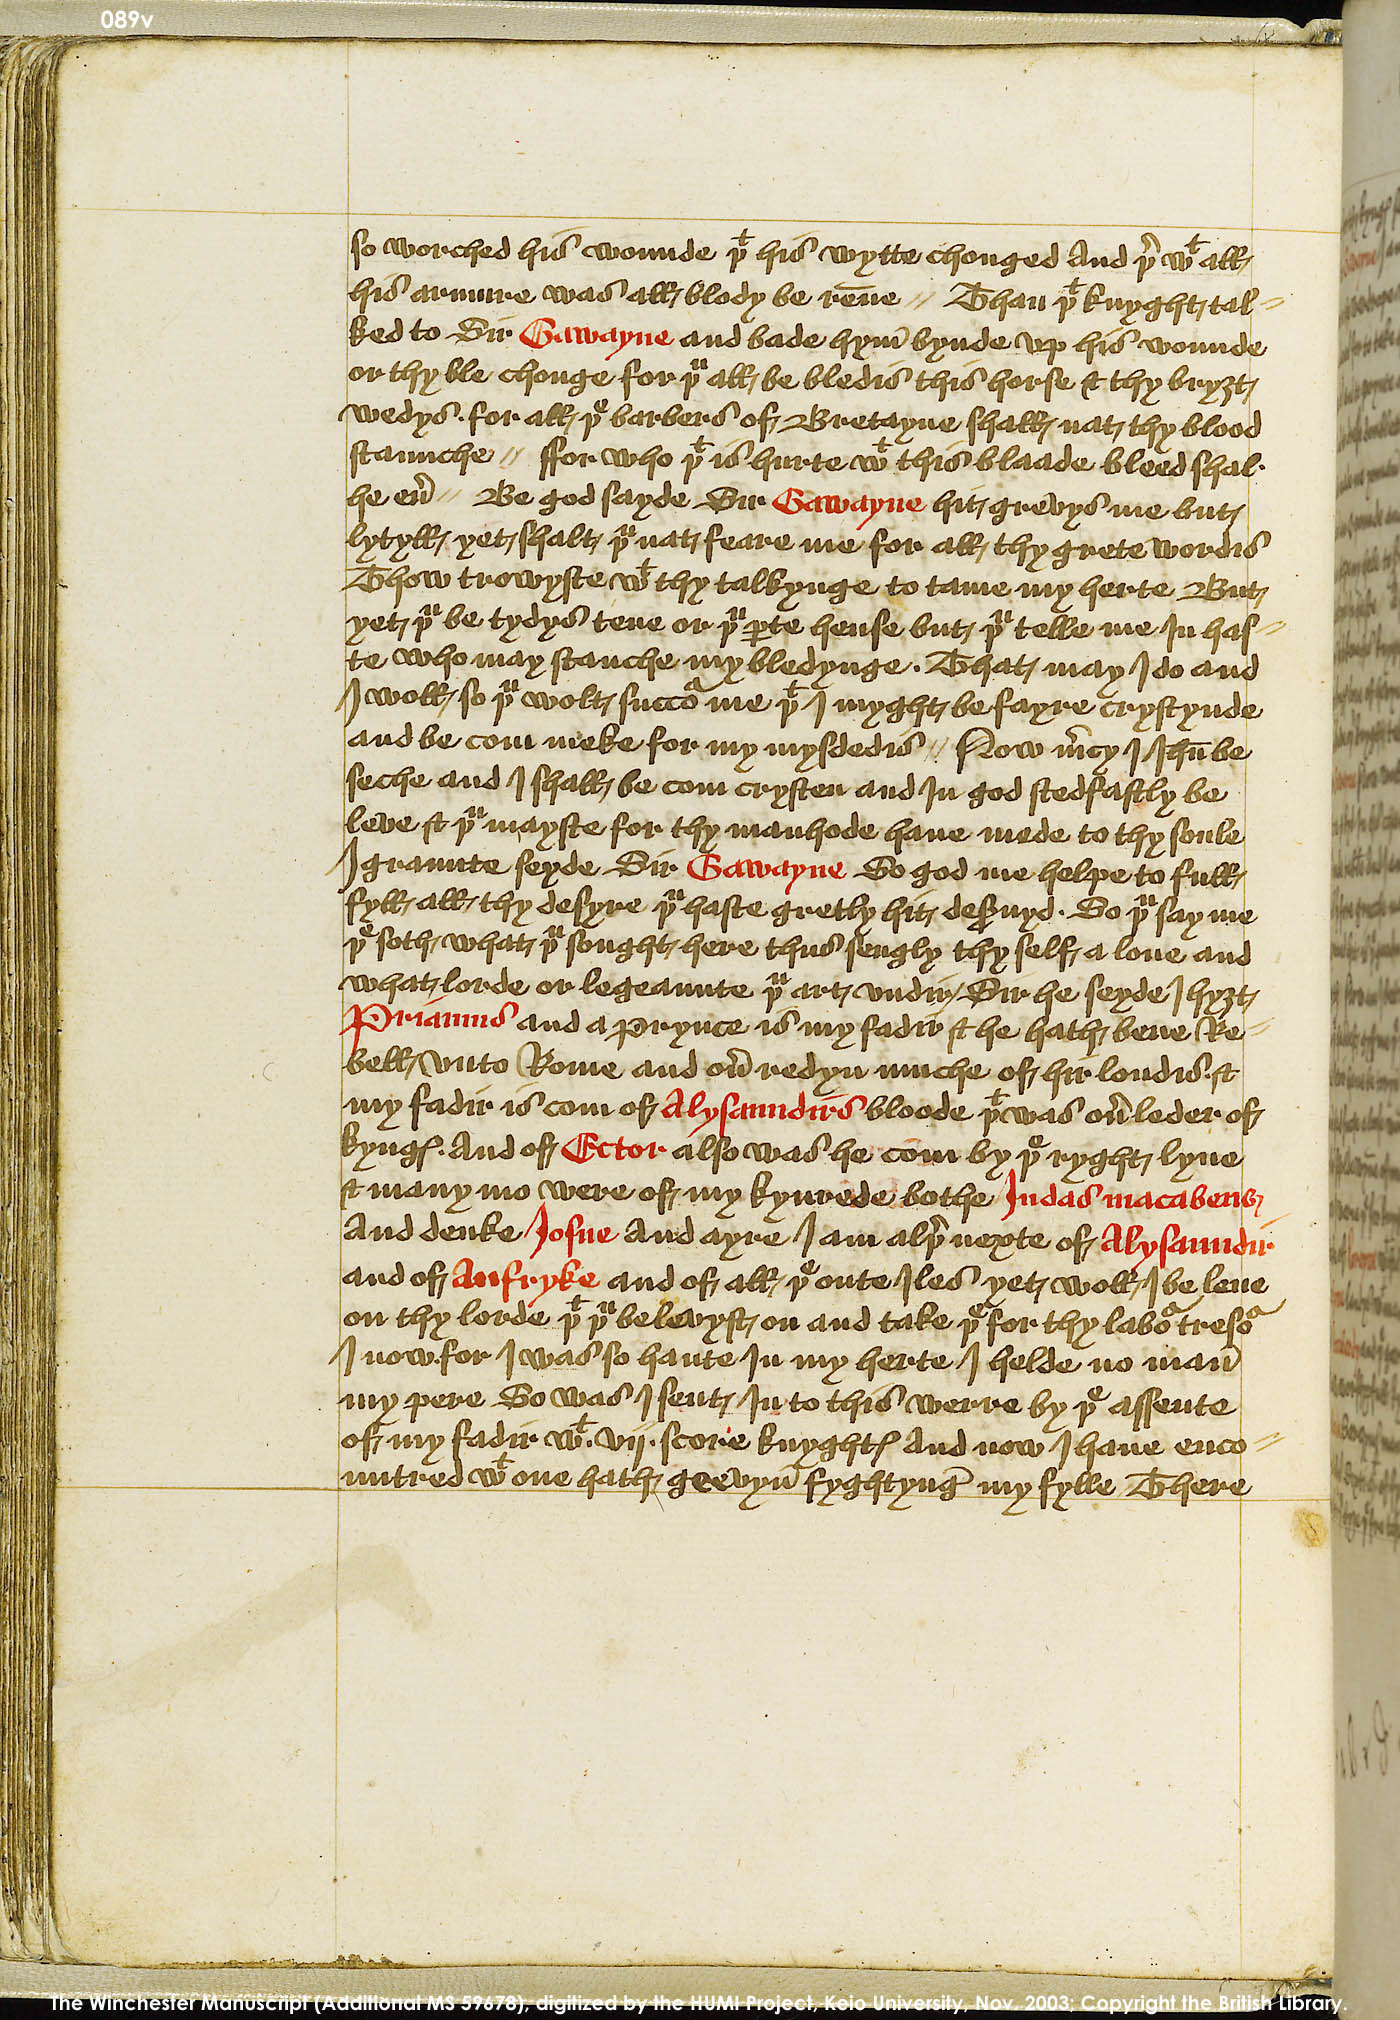 089v
so worched his wounde þᵗ his wytte chonged And þ̉ wᵗ all
his armure was all blody be rēne // Than þᵗ knyght tal⸗
ked to Sir Gawayne and bade hym̄ bynde vp his wounde
or thy ble chonge for þᵘ all be bledis this horse & thy bryȝt
wedys · for all þᵉ barbers of Bretayne shall nat thy blood
staunche // ffor who þᵗ is hurte wᵗ this blaade bleed shal ·
he eủ // Be god sayde Sir Gawayne hit grevys me but
lytyll yet shalt þᵘ nat feare me for all thy grete wordis
Thow trowyste wᵗ thy talkynge to tame my herte But
yet þᵘ be tydys tene or þᵘ ꝑte hense but þᵘ telle me In has⸗
te who may stanche my bledynge · That may I do and
I woll so þᵘ wolt succoᵃ me þᵗ I myght be fayre crystynde
and be com meke for my mysdedis // Now m̉cy I Ihū be
seche and I shall be com crysten and In god stedfastly be
leve & þᵘ mayste for thy manhode haue mede to thy soule
I graunte seyde Sir Gawayne So god me helpe to full
fyll all thy desyre þᵘ haste gretly hit des̉uyd · So þᵘ say me
þᵉ soth what þᵘ sought here thus sengly thy self a lone and
what lorde or legeaunte þᵘ art vndir / Sir he seyde I hyȝt
Priamus and a Prynce is my fadir & he hath bene Re⸗
bell vnto Rome and oủ redyn muche of hir londis · &
my fadir is com of Alysaundirs bloode þᵗ was oủ leder of
kyngꝭ · And of Ector also was he com by þᵉ ryght lyne
& many mo were of my kynrede bothe Judas macabeus
And deuke Josue And ayre I am alþ̉ nexte of Alysaundir
and of Auffryke and of all þᵉ oute Iles yet woll I be leue
on thy lorde þᵗ þᵘ belevyst on and take þᵉ for thy laboᵃ tresoᵃ
I now · for I was so haute In my herte I helde no man̄
my pere So was I sent In to this werre by þᵉ assente
of my fadir wᵗ · vij · score knyghtꝭ And now I haue enco⸗
untred wᵗ one hath geevyn̄ fyghtynḡ my fylle There
The Winchester Manuscript (Additional MS 59678), digitized by the HUMI Project, Keio University, Nov. 2003; Copyright the British Library.